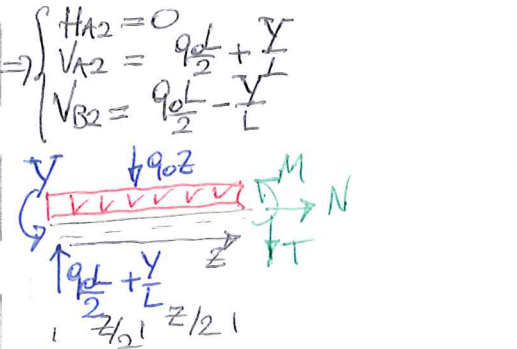 ⇒ { H_A2 = 0
V_A2 = q₀L/2 + Y/L
V_B2 = q₀L/2 - Y/L
Y ↓q₀z M
N
z T
↑ q₀L/2 + Y/L
z/2 z/2